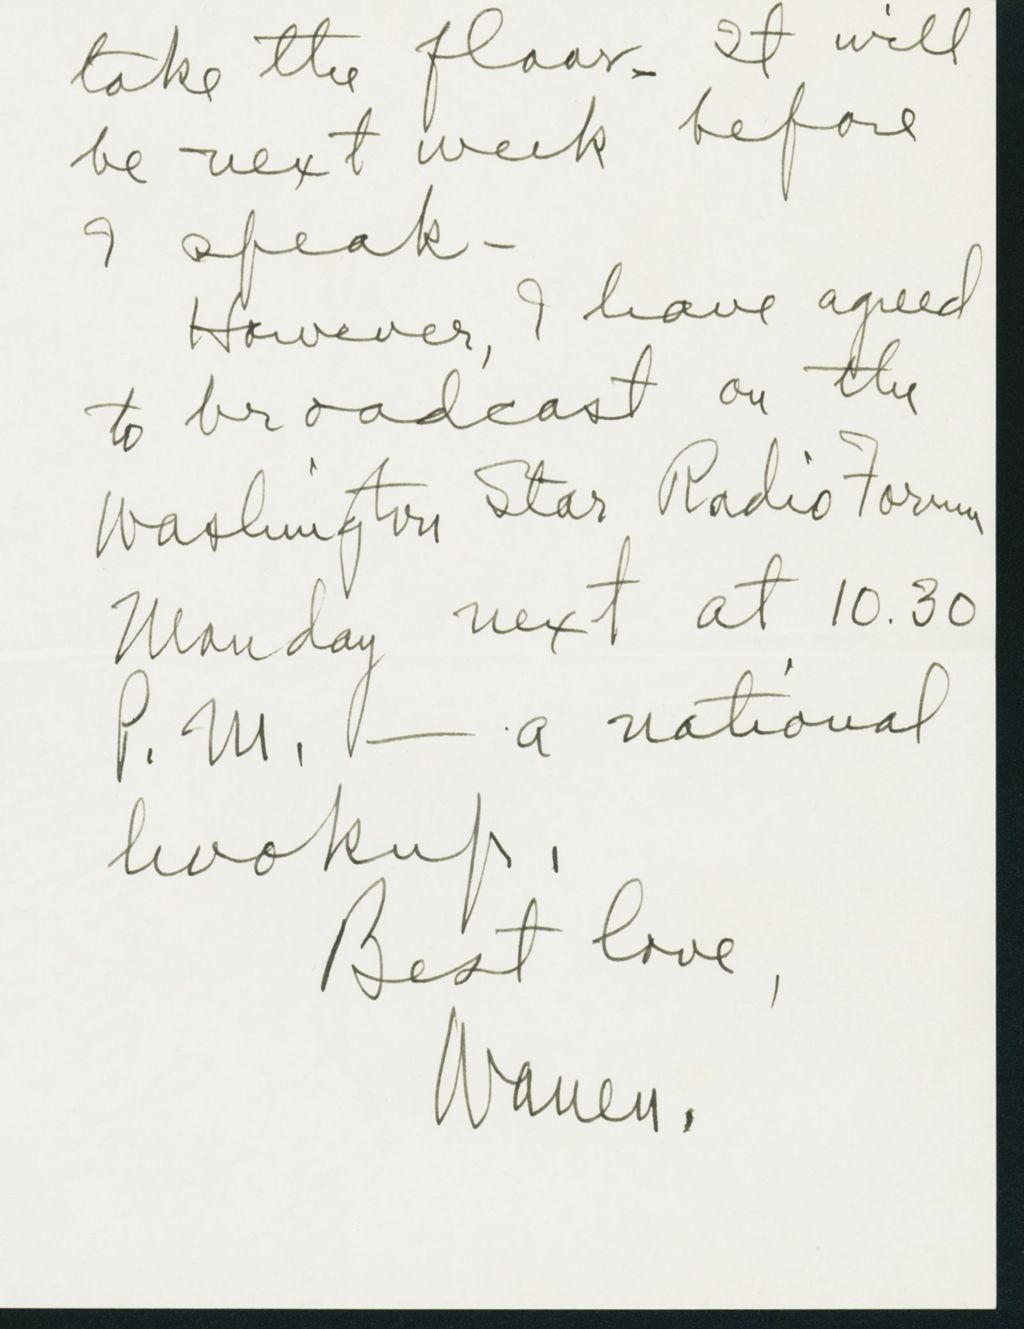 take the floor- It will
be next week before
I speak-
However, I have agreed
to broadcast on the
Washington Star Radio Forum
Monday next at 10.30
P.M. — a national
hookup.
Best love,
Warren.